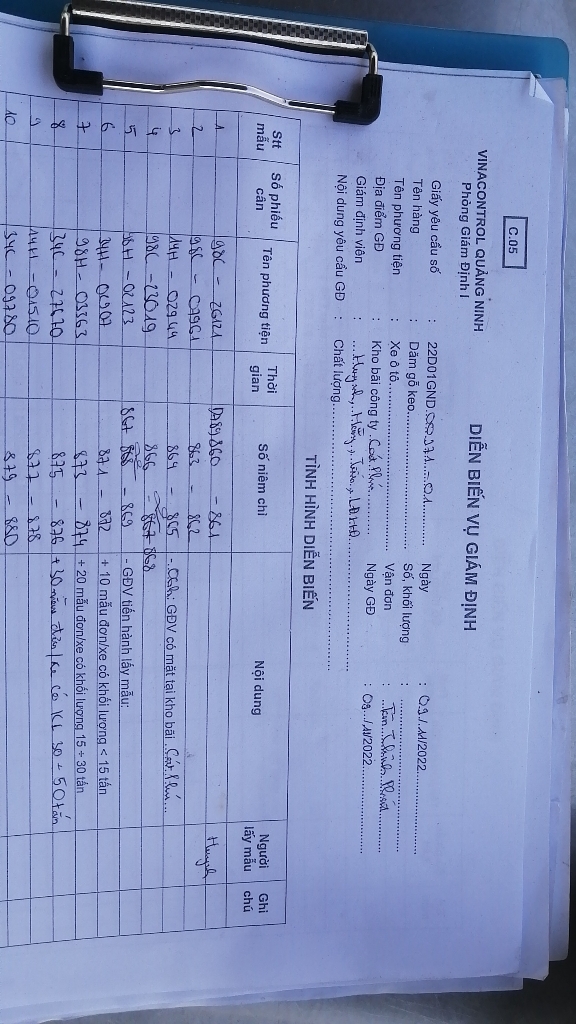 C.05
VINACONTROL QUẢNG NINH
Phòng Giám Định I
DIỄN BIẾN VỤ GIÁM ĐỊNH
Giấy yêu cầu số : 22D01GND - 01 Ngày : 09/11/2022
Tên hàng : Dăm gỗ keo Số, khối lượng :
Tên phương tiện : Xe ô tô Vận đơn :
Địa điểm GĐ : Kho bãi công ty Cát Phú Ngày GĐ : 09/11/2022
Giám định viên :
Nội dung yêu cầu GĐ : Chất lượng
TÌNH HÌNH DIỄN BIẾN
Stt mẫu Số phiếu cân Tên phương tiện Thời gian Số niêm chì Nội dung Người lấy mẫu Ghi chú
1 98C - 26121 860 - 861 Huynh
2 98C - 07961 863 - 862
3 14H - 02944 864 - 865 GĐV có mặt tại kho bãi Cát Phú
4 98C - 23019 866 - 868
5 02123 867 - 869 - GĐV tiến hành lấy mẫu:
6 02907 871 - 872 + 10 mẫu đơn/xe có khối lượng < 15 tấn
7 98H - 03363 873 - 874 + 20 mẫu đơn/xe có khối lượng 15 ÷ 30 tấn
8 34C - 27670 875 - 876 + 30 mẫu đơn/xe có KL 30 ÷ 50 tấn
9 14H - 01510 877 - 878
10 34C - 09780 879 - 880